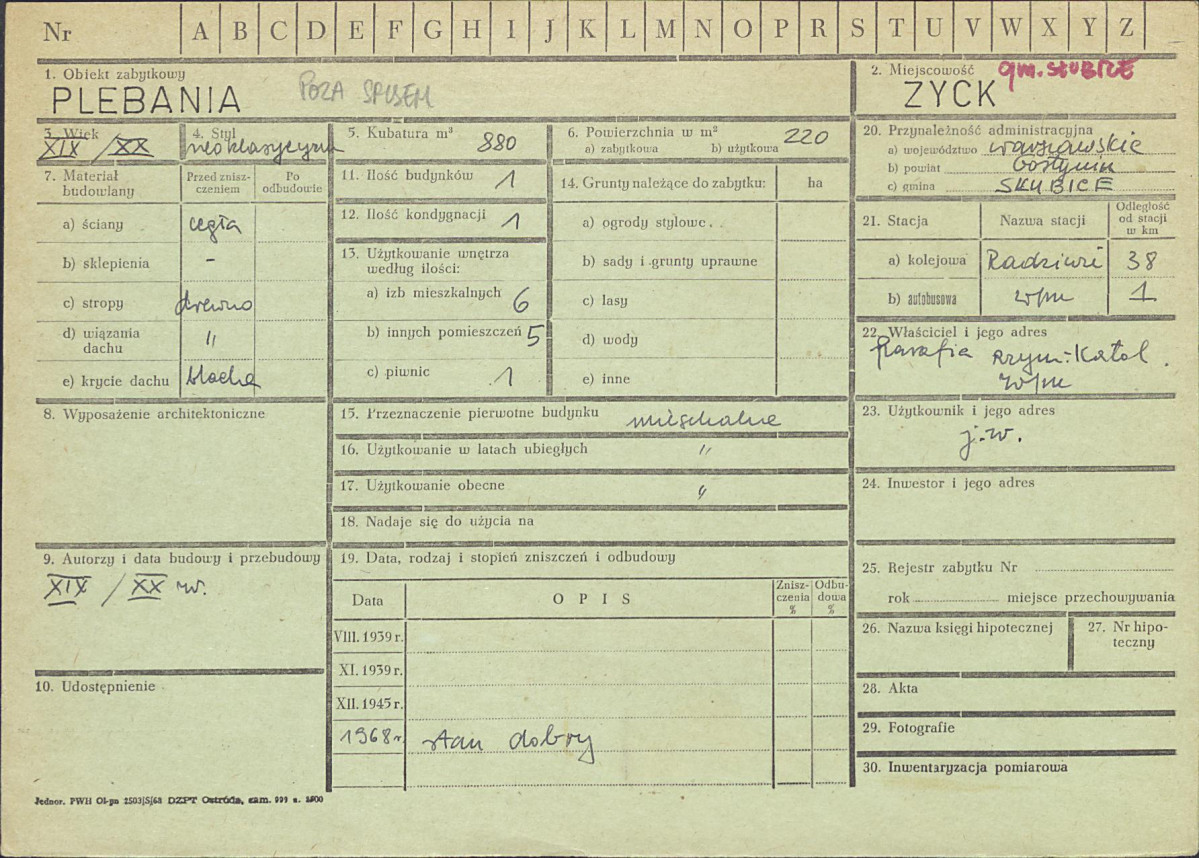 Nr A B C D E F G H I J K L M N O P R S T U V W X Y Z
1. Obiekt zabytkowy
PLEBANIA
POZA SPISEM
2. Miejscowość
gm. SŁUBICE
ZYCK
3. Wiek
XIX / XX
4. Styl
neoklasyczny
5. Kubatura m³ 880
6. Powierzchnia w m²
a) zabytkowa b) użytkowa 220
7. Materiał budowlany
Przed zniszczeniem
Po odbudowie
a) ściany cegła
b) sklepienia -
c) stropy drewno
d) wiązania dachu "
e) krycie dachu blacha
8. Wyposażenie architektoniczne
9. Autorzy i data budowy i przebudowy
XIX / XX w.
10. Udostępnienie
11. Ilość budynków 1
12. Ilość kondygnacji 1
13. Użytkowanie wnętrza według ilości:
a) izb mieszkalnych 6
b) innych pomieszczeń 5
c) piwnic 1
14. Grunty należące do zabytku: ha
a) ogrody stylowe
b) sady i grunty uprawne
c) lasy
d) wody
e) inne
15. Przeznaczenie pierwotne budynku mieszkalne
16. Użytkowanie w latach ubiegłych "
17. Użytkowanie obecne "
18. Nadaje się do użycia na
19. Data, rodzaj i stopień zniszczeń i odbudowy
Data OPIS Zniszczenia % Odbudowa %
VIII. 1939 r.
XI. 1939 r.
XII. 1945 r.
1968 r. stan dobry
20. Przynależność administracyjna
a) województwo warszawskie
b) powiat Gostynin
c) gmina SŁUBICE
21. Stacja Nazwa stacji Odległość od stacji w km
a) kolejowa Radziwie 38
b) autobusowa w/m 1
22. Właściciel i jego adres
parafia rzym.-katol.
w/m
23. Użytkownik i jego adres
j.w.
24. Inwestor i jego adres
25. Rejestr zabytku Nr
rok miejsce przechowywania
26. Nazwa księgi hipotecznej
27. Nr hipoteczny
28. Akta
29. Fotografie
30. Inwentaryzacja pomiarowa
Jednor. PWH Ol-pn 2503/S/68 DZPT Ostróda, zam. 999 n. 2500